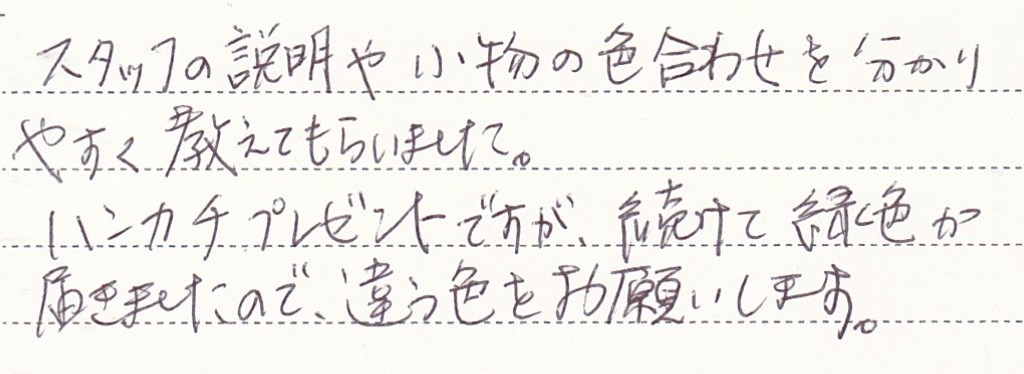 スタッフの説明や小物の色合わせを分かり
やすく教えてもらいました。
ハンカチプレゼントですが、続けて緑色が
届きましたので、違う色をお願いします。